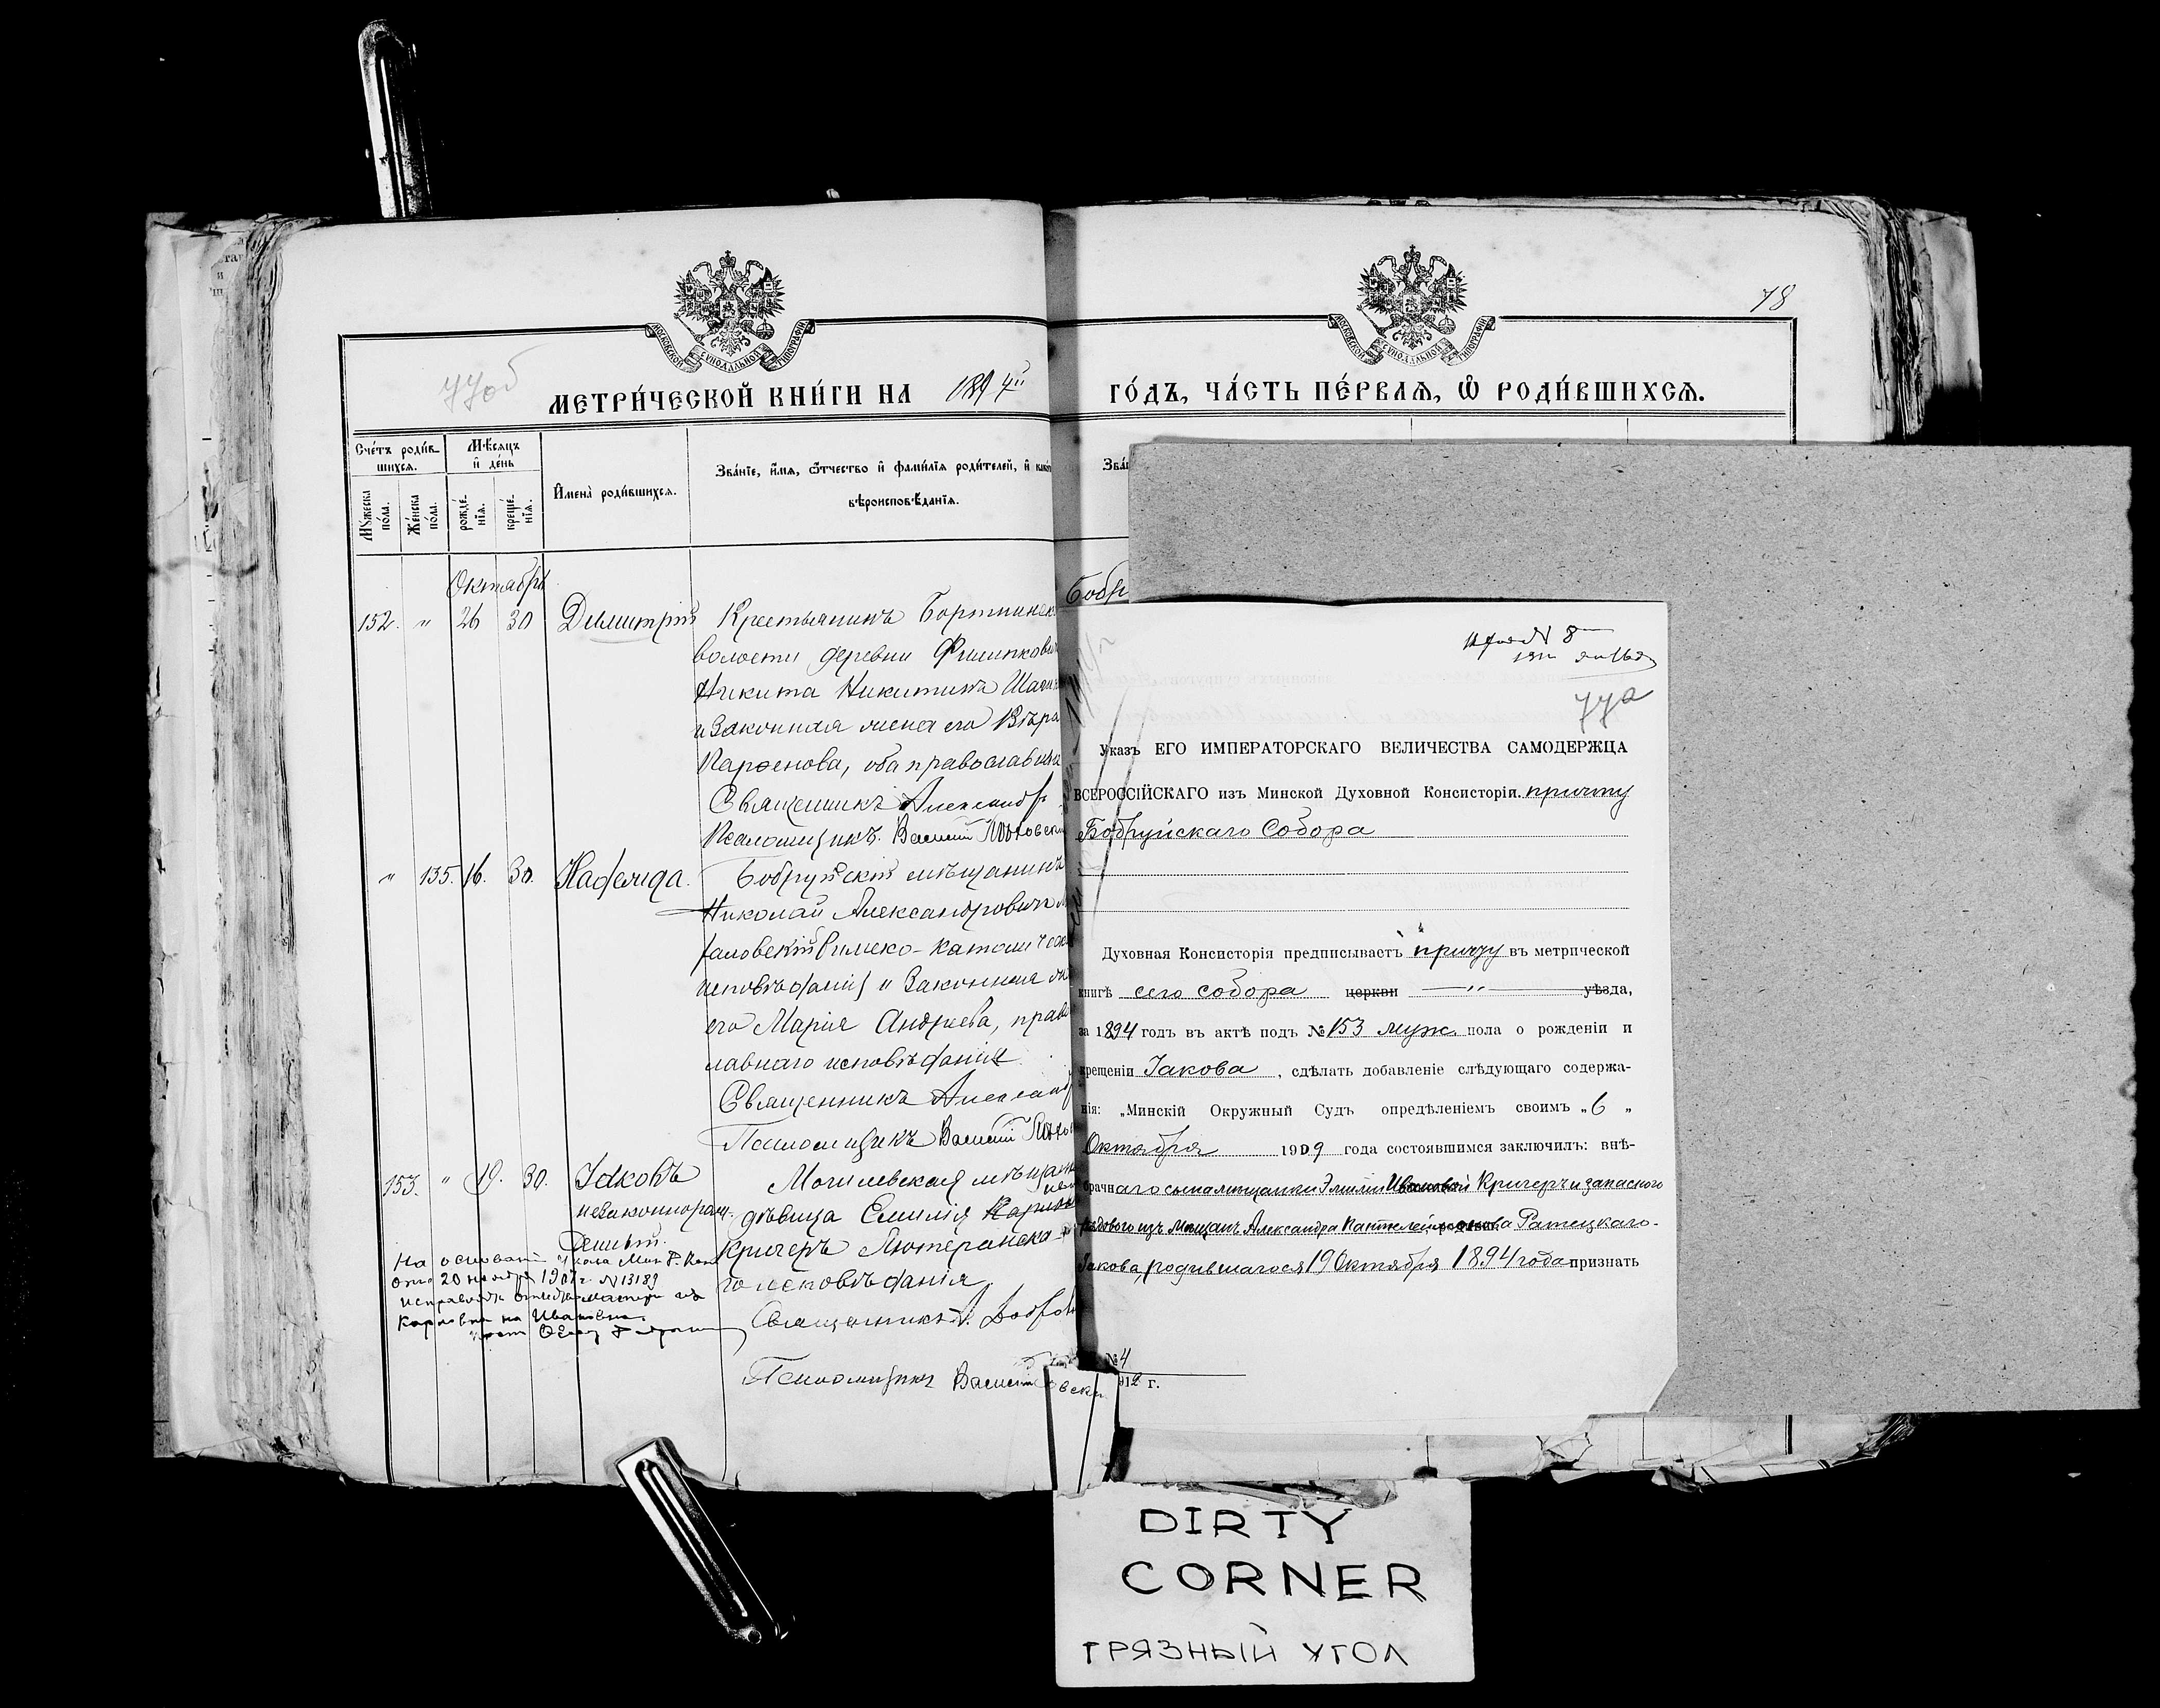 78
77об
МЕТРИ́ЧЕСКОЙ КНИ́ГИ НА 1894й ГО́ДЪ, ЧА́СТЬ ПЕ́РВАѦ, Ѽ РОДИ́ВШИХСѦ.
МОСКОВСКОЙ СѴНОДАЛЬНОЙ ТИПОГРАФІИ
МОСКОВСКОЙ СѴНОДАЛЬНОЙ ТИПОГРАФІИ
Сче́тъ роди́в-
шихсѧ.
Мѣ́сѧцъ
и҆ де́нь
Мꙋ́жеска по́ла.
Же́нска по́ла.
рожде́-
нїѧ.
креще́-
нїѧ.
И҆мена̀ роди́вшихсѧ.
Зва́нїе, и҆́мѧ, ѻ҆́тчество и҆ фами́лїѧ роди́телей, и҆ како́
вѣроисповѣ́данїѧ.
Зва
Октябрь
152. " 26 30 Димитрій
Крестьянинъ
волости деревни
Никита Никитинъ
и Законная жена его Вѣра
Парѳенова, оба православны
Священникъ Александръ
Псаломщикъ Василій
" 135. 16. 30. Надежда.
Бобруйскій мѣщанинъ
Николай Александровичъ
римско-католическ
исповѣданія и Законная
его Марія Андреева, право
славнаго исповѣданія
Священникъ Александ
Псаломщикъ Василій
153. " 19. 30. Іаковъ
незаконнорож-
денный.
Могилевская мѣщан
дѣвица Емилія
Кричеръ Лютеранска
го исповѣданія
Священникъ
Псаломщикъ Василій
На основаніи Указа Мин. Д. Кон.
отъ 20 ноября 1907 г. N 13189
исправлено отчество матери съ
Карловна на Ивановна.
Бобр
77а
Указъ ЕГО ИМПЕРАТОРСКАГО ВЕЛИЧЕСТВА САМОДЕРЖЦА
ВСЕРОССІЙСКАГО изъ Минской Духовной Консисторіи. причту
Бобруйскаго Собора
Духовная Консисторія предписываетъ причту въ метрической
книгѣ сего собора церкви " уѣзда,
за 1894 годъ въ актѣ подъ № 153 муж. пола о рожденіи и
крещеніи Іакова, сдѣлать добавленіе слѣдующаго содержа-
нія: „Минскій Окружный Судъ опредѣленіемъ своимъ „6 „
Октября 1909 года состоявшимся заключилъ: внѣ-
брачнаго сына мѣщанки Эмиліи Ивановой Кричеръ и запаснаго
рядового изъ мѣщанъ Александра Пантелеймонова Ратецкаго-
Іакова, родившагося 19 Октября 1894 года признать
№ 4
912 г.
DIRTY
CORNER
ГРЯЗНЫЙ УГОЛ